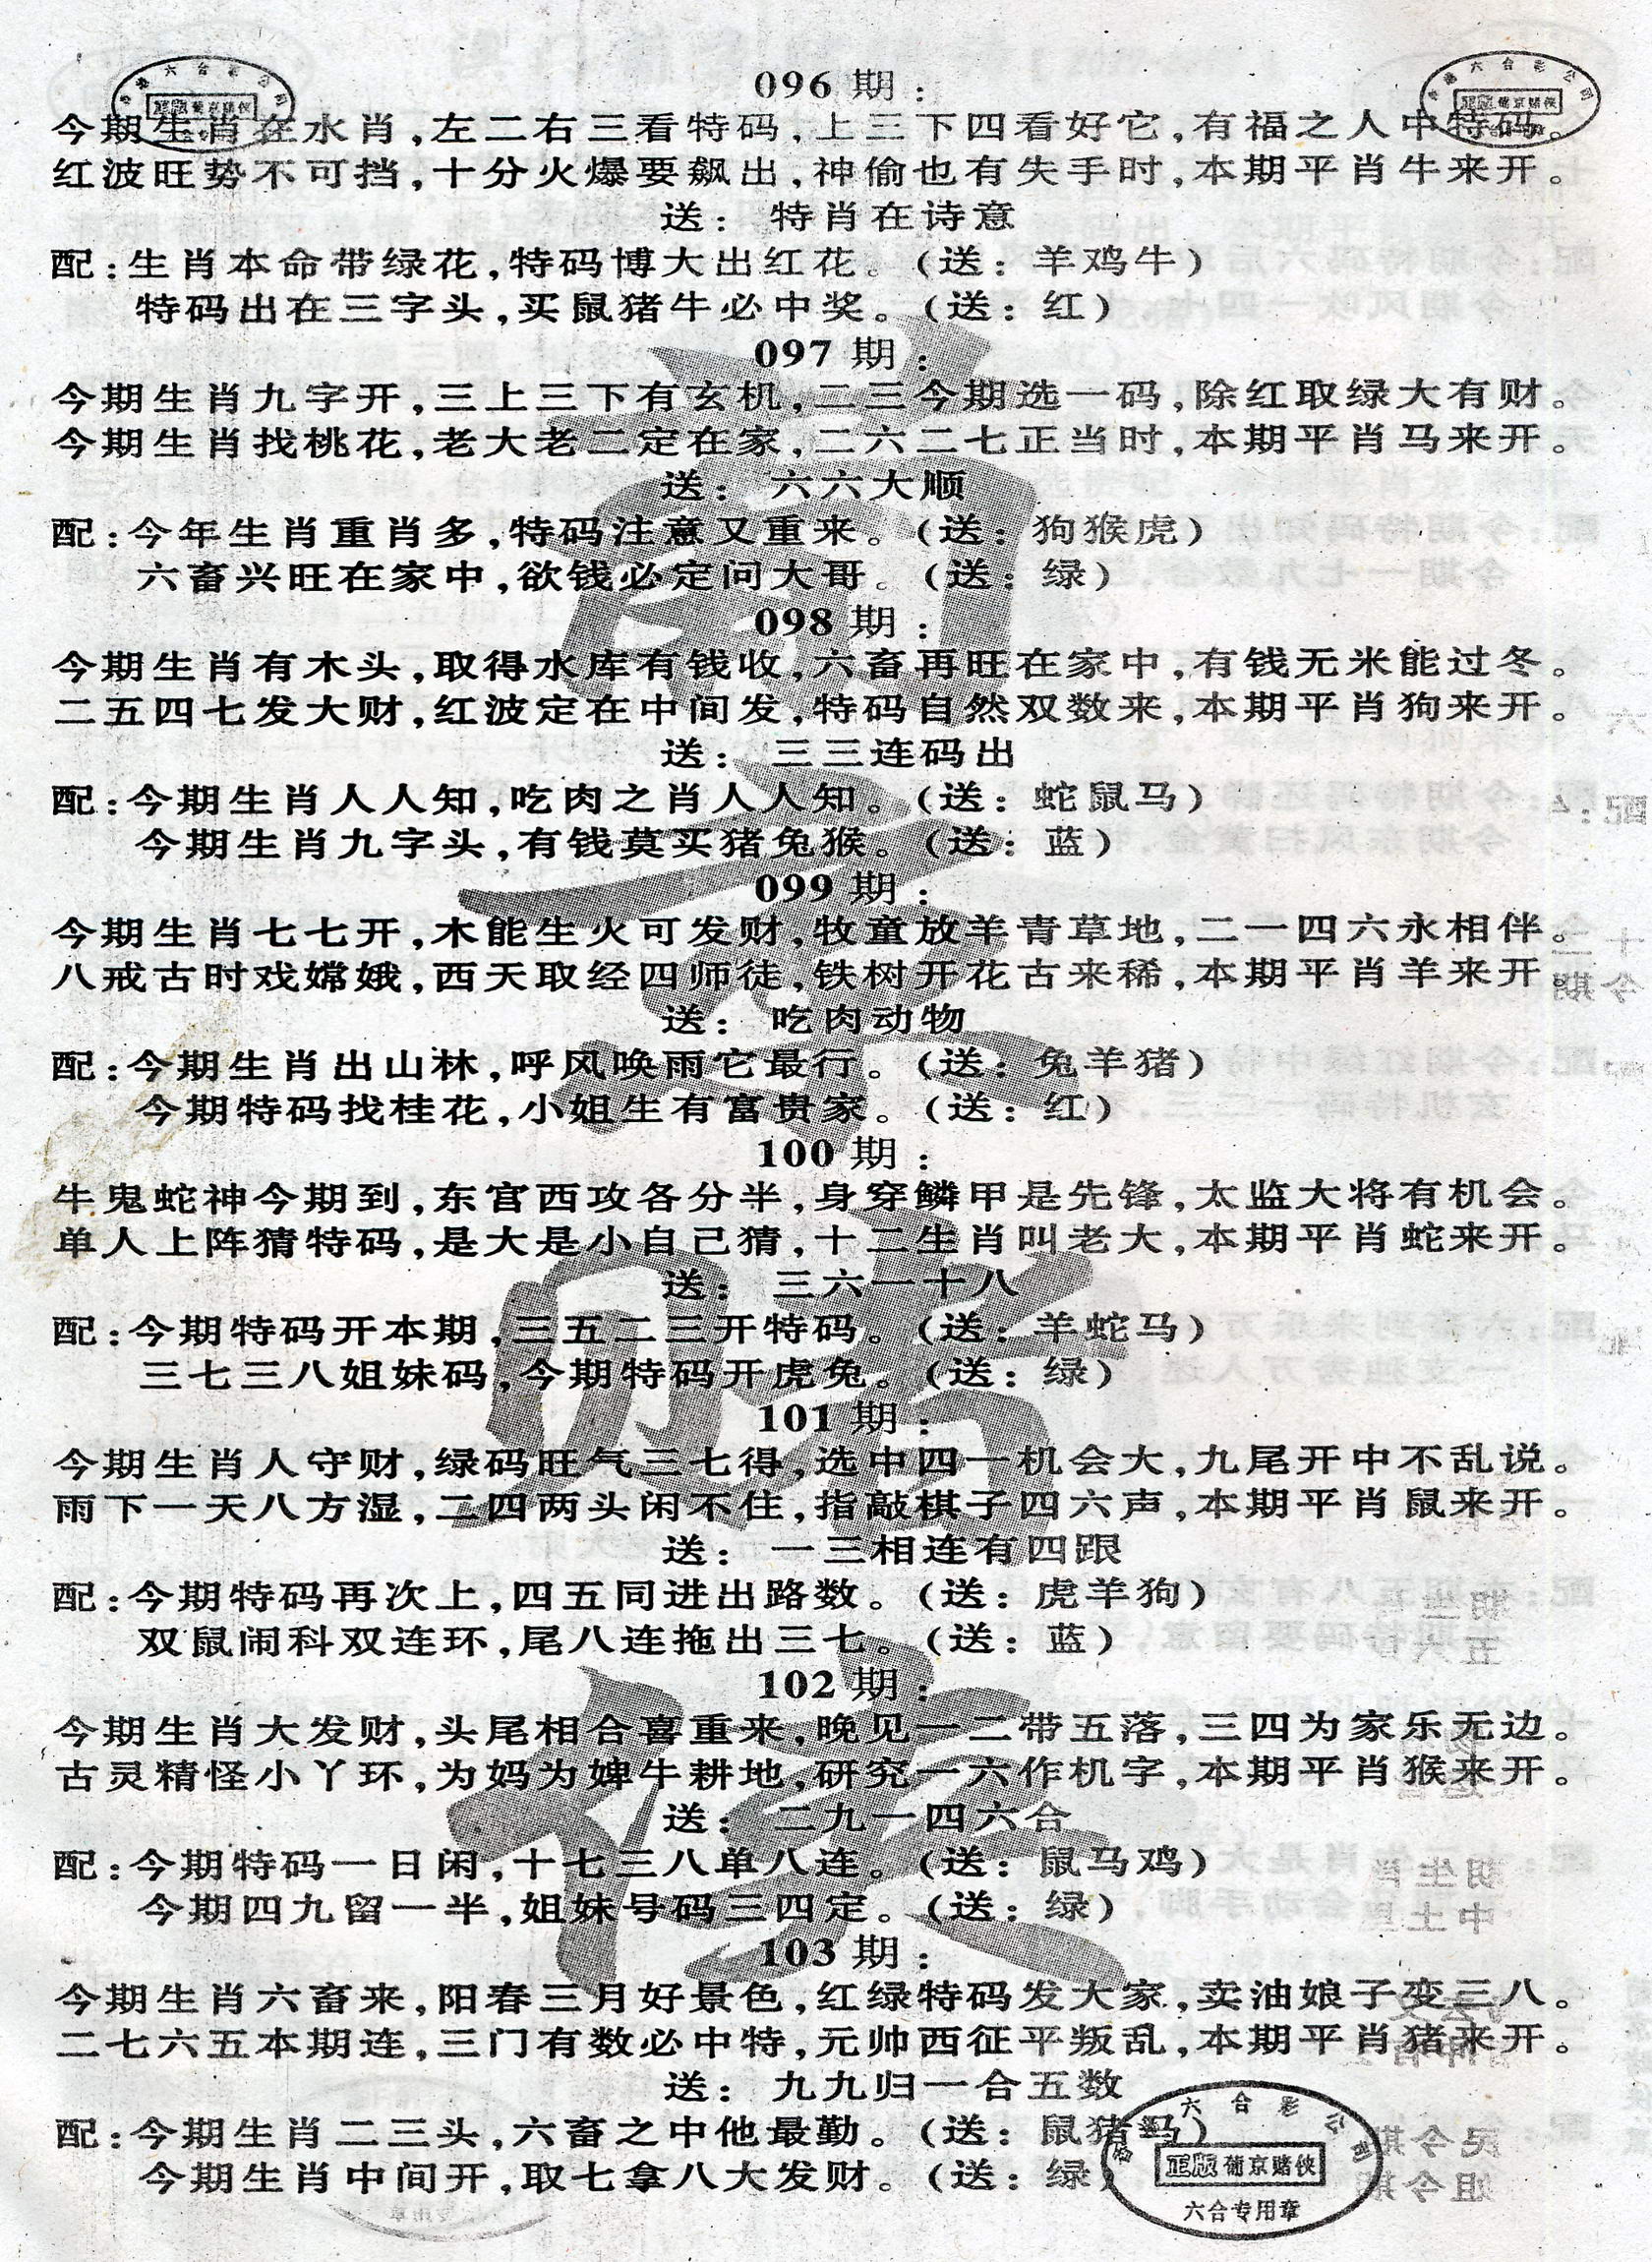 096期：
今期生肖在水肖,左二右三看特码,上三下四看好它,有福之人中特码。
红波旺势不可挡,十分火爆要飙出,神偷也有失手时,本期平肖牛来开。
送：特肖在诗意
配:生肖本命带绿花,特码博大出红花。(送：羊鸡牛)
特码出在三字头,买鼠猪牛必中奖。(送：红)
097期：
今期生肖九字开,三上三下有玄机,二三今期选一码,除红取绿大有财。
今期生肖找桃花,老大老二定在家,二六二七正当时,本期平肖马来开。
送：六六大顺
配:今年生肖重肖多,特码注意又重来。(送：狗猴虎)
六畜兴旺在家中,欲钱必定问大哥。(送：绿)
098期：
今期生肖有木头,取得水库有钱收,六畜再旺在家中,有钱无米能过冬。
二五四七发大财,红波定在中间发,特码自然双数来,本期平肖狗来开。
送：三三连码出
配:今期生肖人人知,吃肉之肖人人知。(送：蛇鼠马)
今期生肖九字头,有钱莫买猪兔猴。(送：蓝)
099期：
今期生肖七七开,木能生火可发财,牧童放羊青草地,二一四六永相伴。
八戒古时戏嫦娥,西天取经四师徒,铁树开花古来稀,本期平肖羊来开。
送：吃肉动物
配:今期生肖出山林,呼风唤雨它最行。(送：兔羊猪)
今期特码找桂花,小姐生有富贵家。(送：红)
100期：
牛鬼蛇神今期到,东宫西攻各分半,身穿鳞甲是先锋,太监大将有机会。
单人上阵猜特码,是大是小自己猜,十二生肖叫老大,本期平肖蛇来开。
送：三六一十八
配:今期特码开本期,三五二三开特码。(送：羊蛇马)
三七三八姐妹码,今期特码开虎兔。(送：绿)
101期：
今期生肖人守财,绿码旺气三七得,选中四一机会大,九尾开中不乱说。
雨下一天八方湿,二四两头闲不住,指敲棋子四六声,本期平肖鼠来开。
送：一三相连有四跟
配:今期特码再次上,四五同进出路数。(送：虎羊狗)
双鼠闹科双连环,尾八连拖出三七。(送：蓝)
102期：
今期生肖大发财,头尾相合喜重来,晚见一二带五落,三四为家乐无边。
古灵精怪小丫环,为妈为婢牛耕地,研究一六作机字,本期平肖猴来开。
送：二九一四六合
配:今期特码一日闲,十七三八单八连。(送：鼠马鸡)
今期四九留一半,姐妹号码三四定。(送：绿)
103期：
今期生肖六畜来,阳春三月好景色,红绿特码发大家,卖油娘子变三八。
二七六五本期连,三门有数必中特,元帅西征平叛乱,本期平肖猪来开。
送：九九归一合五数
配:今期生肖二三头,六畜之中他最勤。(送：鼠猪马)
今期生肖中间开,取七拿八大发财。(送：绿)
正版葡京赌侠
六合专用章